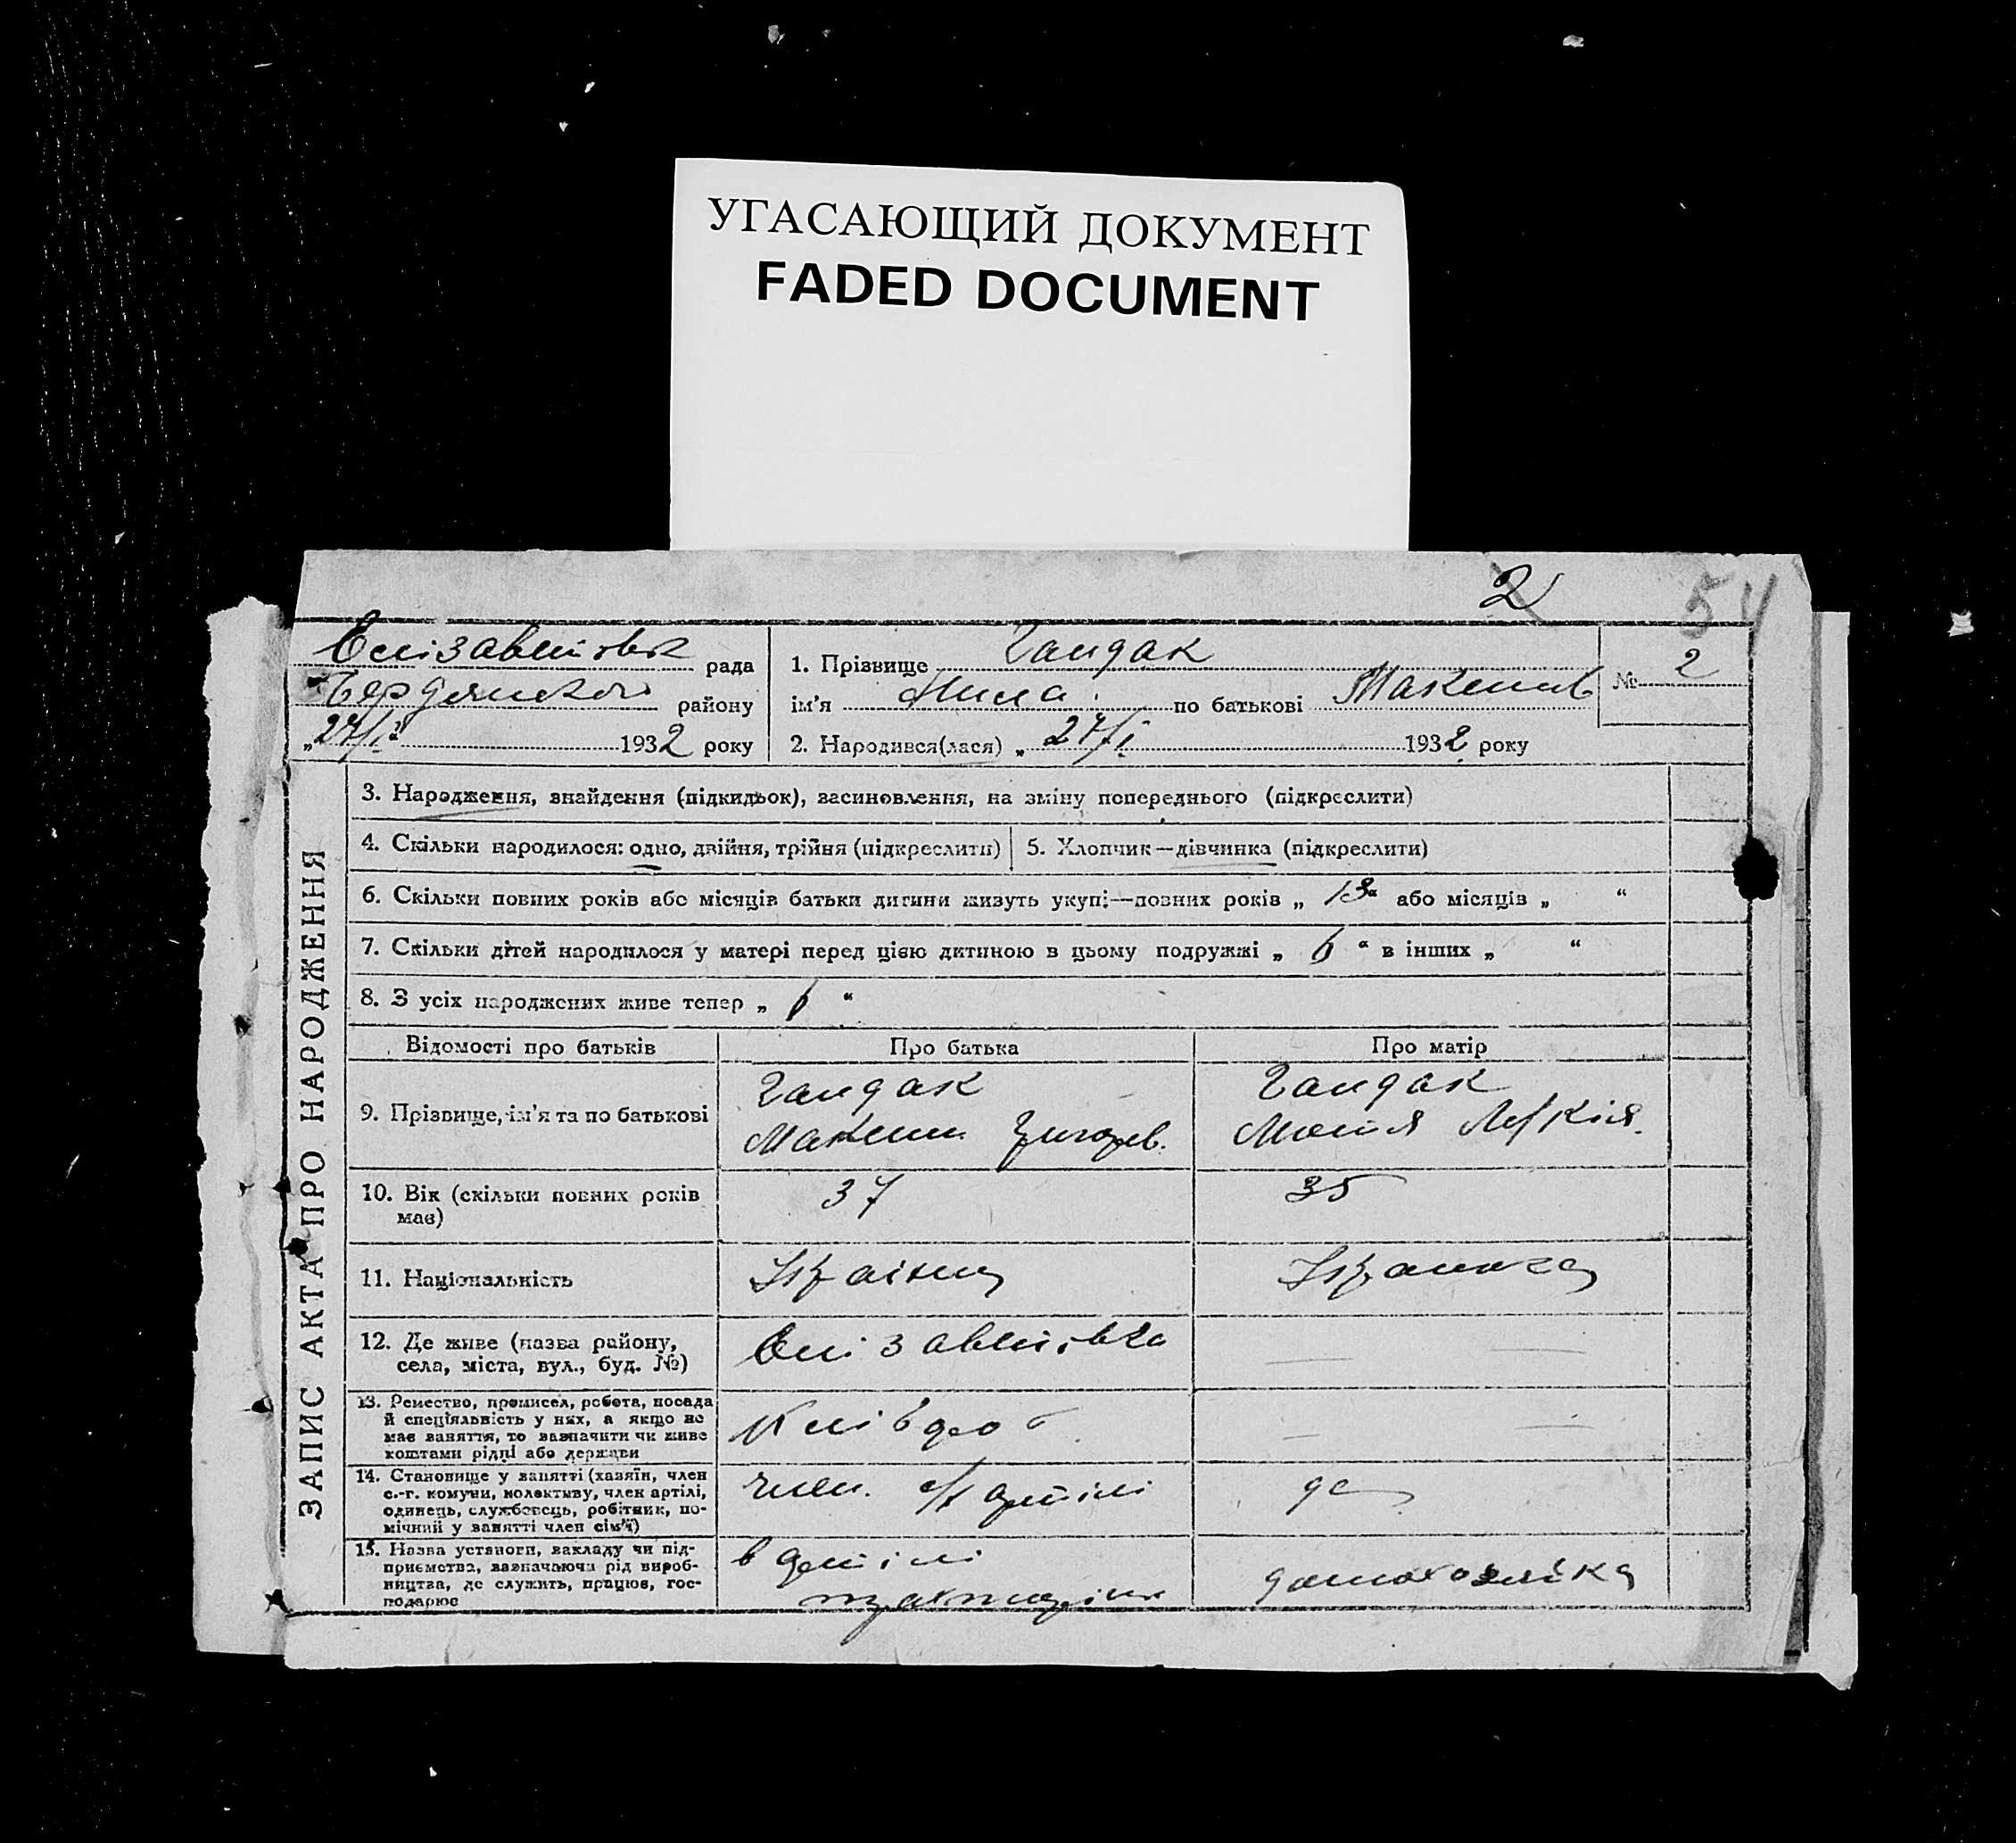 УГАСАЮЩИЙ ДОКУМЕНТ
FADED DOCUMENT
2
54
Єлізаветівк рада
Бердянского району
„27/I“ 1932 року
1. Прізвище Гандак
ім'я Нина по батькові Максимів
2. Народився(лася) „27/I 1932 року
№ 2
ЗАПИС АКТА ПРО НАРОДЖЕННЯ
3. Народження, знайдення (підкидьок), засиновлення, на зміну попереднього (підкреслити)
4. Скільки народилося: одно, двійня, трійня (підкреслити) 5. Хлопчик—дівчинка (підкреслити)
6. Скільки повних років або місяців батьки дитини живуть укупі—повних років „13“ або місяців „ “
7. Скільки дітей народилося у матері перед цією дитиною в цьому подружжі „6“ в інших „ “
8. З усіх народжених живе тепер „6“
Відомості про батьків Про батька Про матір
9. Прізвище, ім'я та по батькові
Гандак Гандак
Максим Григорев.
10. Вік (скільки повних років має) 37 35
11. Національність Україниц Украинка
12. Де живе (назва району, села, міста, вул., буд. №) Єлізаветівка — —
13. Ремество, промисел, робота, посада й спеціяльність у них, а якщо не має заняття, то зазначити чи живе коштами рідні або держави
Хлібороб — —
14. Становище у занятті (хазяїн, член с.-г. комуни, колективу, член артілі, одинець, службовець, робітник, помічний у занятті член сім'ї)
член. с/г артілі
15. Назва установи, закладу чи підприємства, зазначаючи рід виробництва, де служить, працює, господарює
в артілі
домохозяйка